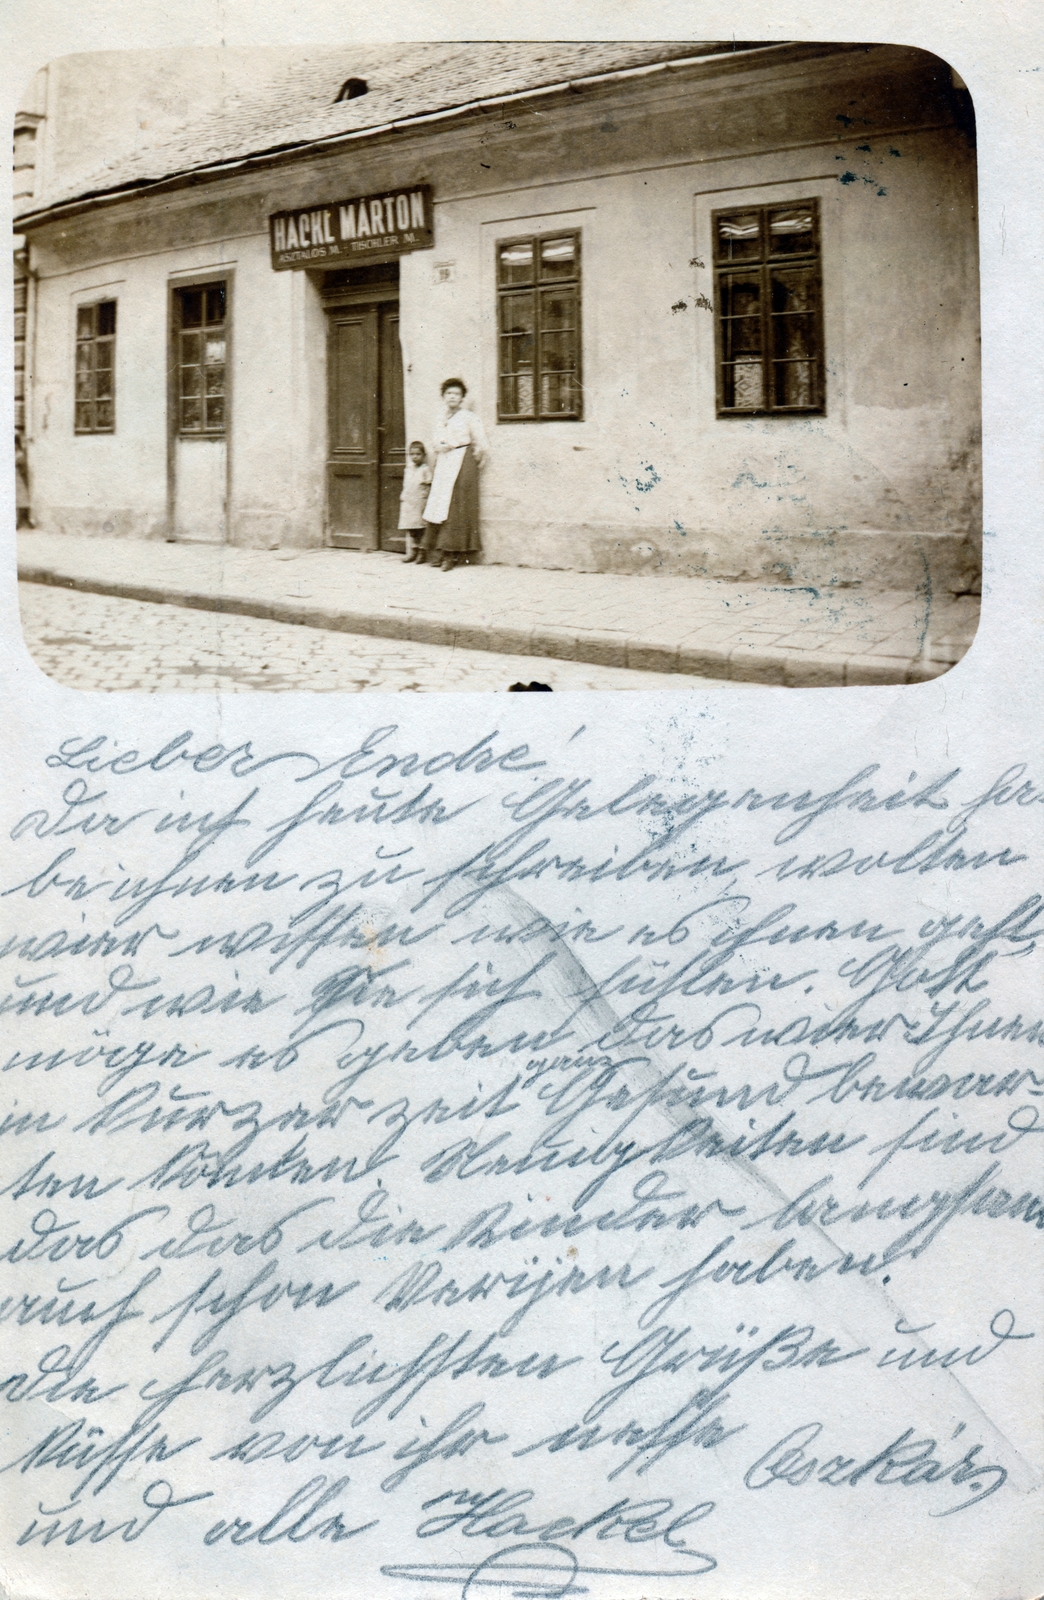 HACKL MÁRTON
ASZTALOS M. - TISCHLER M.
19
Lieber Endré
Da ich heute Gelegenheit ha-
be ihnen zu schreiben, wolten
wier wissen wie es ihnen geht,
und wie Sie sich fühlen. Gott
möge es geben das wier Ihnen
in kurzer zeit ganz Gesund bewar-
ten könten. Neuigkeiten sind
das das die Kinder langsam
auch schon haben.
Die herzlichsten Grüße und
Küsse von ihr neffe Oszkár.
und alle Hackel